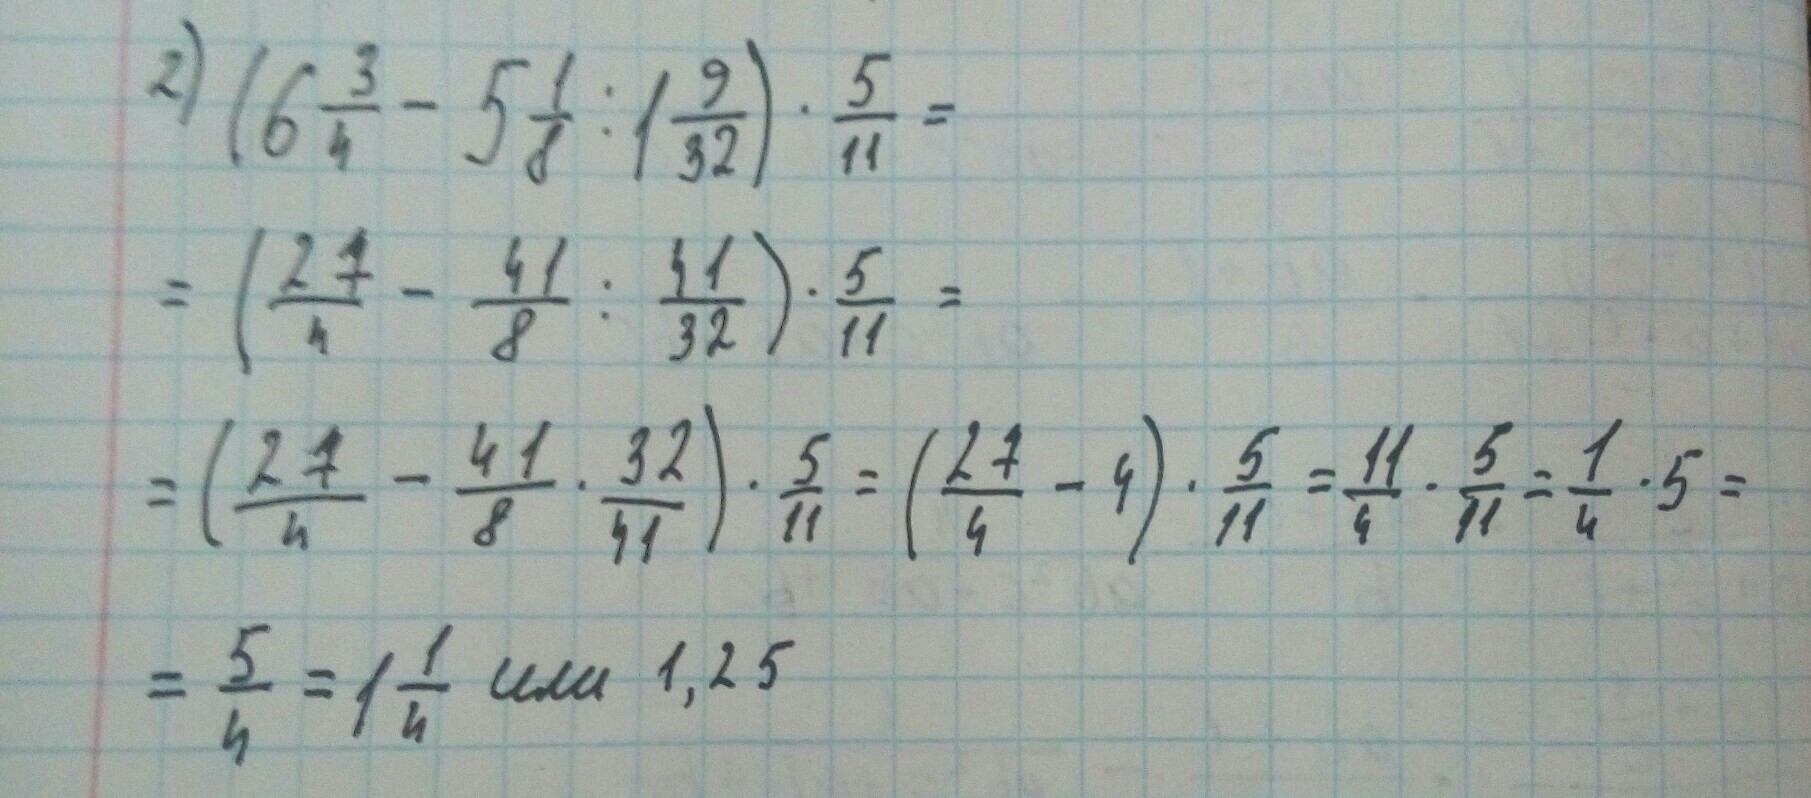 2) (6 3/4 - 5 1/8 : 1 9/32) · 5/11 =
= (27/4 - 41/8 : 41/32) · 5/11 =
= (27/4 - 41/8 · 32/41) · 5/11 = (27/4 - 4) · 5/11 = 11/4 · 5/11 = 1/4 · 5 =
= 5/4 = 1 1/4 или 1,25